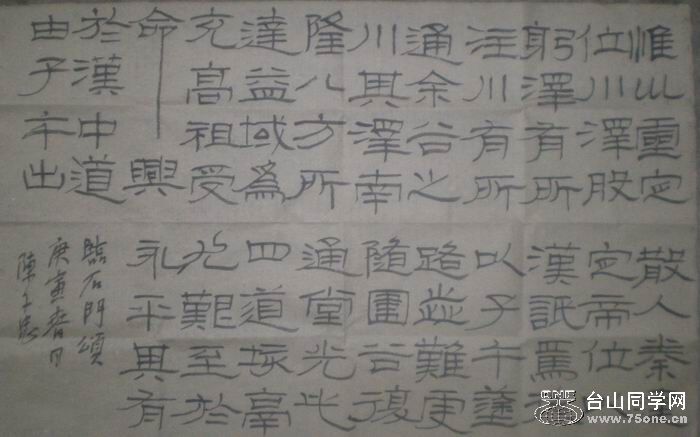 惟巛靈定
位川澤股
躬澤有所
注川有所
通余谷之
川其澤南
隆八方所
達益域為
充高祖受
命興
於漢中道
由子午出
散入秦
定帝位
漢詆焉
以子午塗
路澀難更
隨圍谷復
通堂光此
四道垓鬲
尤艱至於
永平其有
臨石門頌
庚寅春月
陳
台山同学网
www.75one.cn